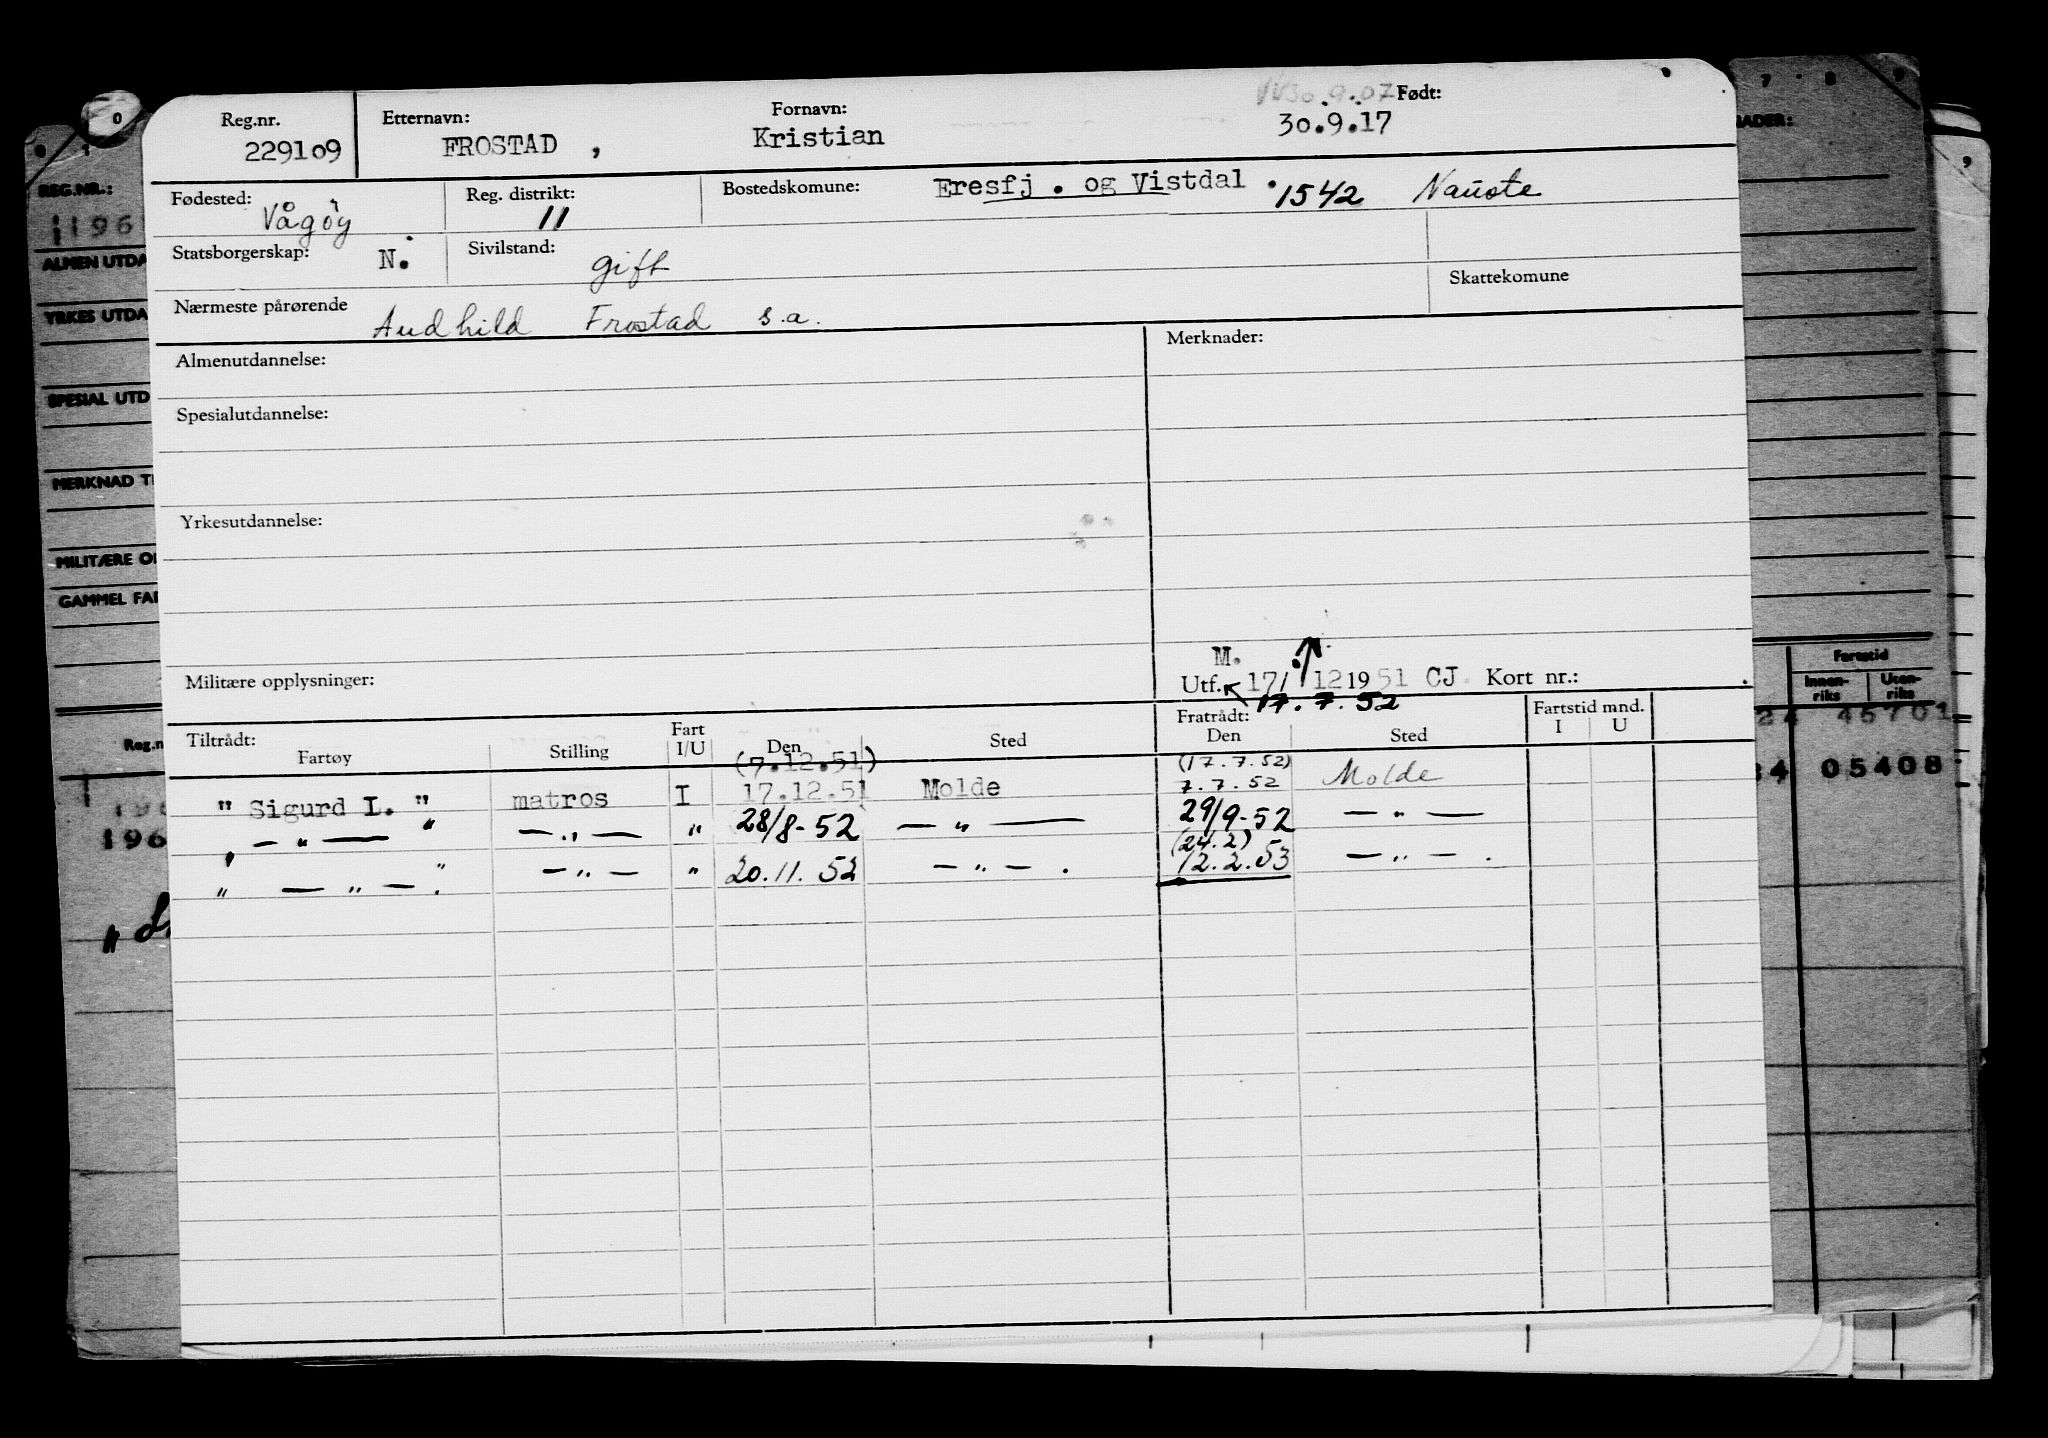 Reg.nr. 229109
Etternavn: FROSTAD ,
Fornavn: Kristian
30.9.07 Født: 30.9.17
Fødested: Vågöy
Reg. distrikt: 11
Bostedskomune: Eresfj . og Vistdal . 1542 Nauste
Statsborgerskap: N.
Sivilstand: gift
Skattekomune
Nærmeste pårørende Audhild Frostad s.a.
Almenutdannelse:
Merknader:
Spesialutdannelse:
Yrkesutdannelse:
Militære opplysninger:
M.
Utf. 17/ 12 1951 CJ. Kort nr.:
17.7.52
Tiltrådt: Fratrådt: Fartstid mnd.
Fartøy Stilling Fart I/U Den Sted Den Sted I U
(7.12.51) (17.7.52)
" Sigurd L. " matros I 17.12.51 Molde 7.7.52 Molde
" — " — " — " — " 28/8-52 — " — 29/9-52 — " —
(24.2)
" — " — . " — " — " 20.11.52 — " — . 12.2.53 — " — .
0 1
REG.NR.:
1196
ALMEN UTDA
YRKES UTDA
SPESIAL UTD
MERKNAD T
MILITÆRE O
GAMMEL FA
Reg.n
196
196
7 8 9
NADER:
9
Fartstid
Innen-riks Uten-riks
24 45701
34 05408